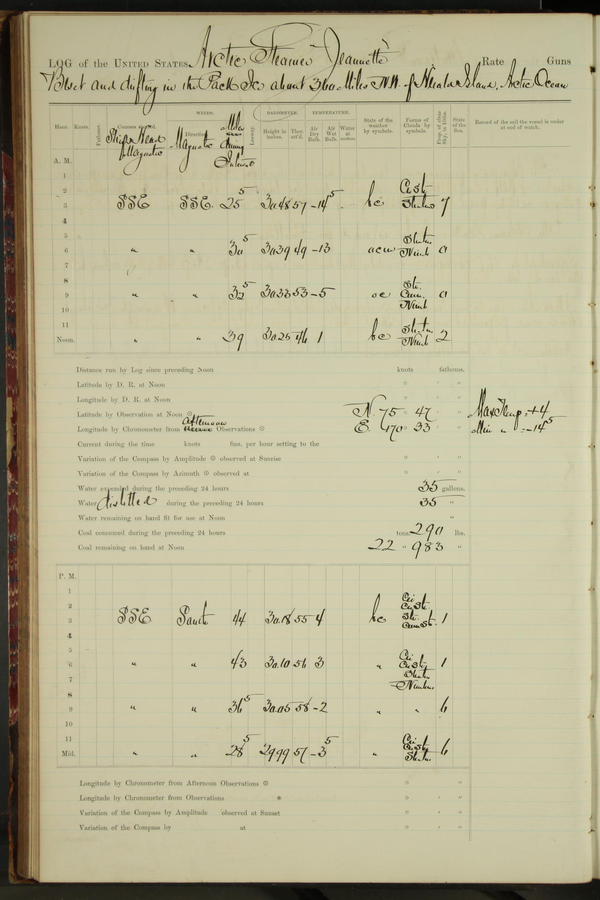 LOG of the UNITED STATES Arctic Steamer Jeannette Rate Guns
Beset and drifting in the Pack Ice about 360 Miles N.W. of Herald Island, Arctic Ocean
WINDS. BAROMETER. TEMPERATURE.
Hour. Knots. Fathoms. Courses Ship's Head Magnetic Direction Magnetic Miles during Interval Leeway. Height in inches. Ther. att'd. Air Dry Bulb. Air Wet Bulb. Water at State of the weather by symbols. Forms of Clouds by symbols. Prop. of clear Sky, in 10ths. State of the Sea. Record of the sail the vessel is under at end of watch.
A. M.
1
2
3 SSE SSE. 25 5 30.48 57 -14 5 bc Ci St. Stratus 7
4
5
6 " " 30 5 30.39 49 -13 Stratus Nimb 0
7
8
9 " " 32 5 30.33 53 -5 Str. Cum. Nimb 0
10
11
Noon. " " 39 30.25 46 1 bc Stratus Nimb 2
Distance run by Log since preceding Noon knots fathoms.
Latitude by D. R. at Noon ° ' "
Longitude by D. R. at Noon ° ' "
Latitude by Observation at Noon N. 75 ° 47 ' " Max Temp :+4
Longitude by Chronometer from Afternoon Observations E. 170 ° 33 ' " Min " :-14 5
Current during the time knots fms. per hour setting to the
Variation of the Compass by Amplitude observed at Sunrise ° ' "
Variation of the Compass by Azimuth observed at ° ' "
Water expended during the preceding 24 hours 35 gallons.
Water distilled during the preceding 24 hours 35 "
Water remaining on hand fit for use at Noon "
Coal consumed during the preceding 24 hours tons 290 lbs.
Coal remaining on hand at Noon 22 " 983 "
P. M.
1
2
3 SSE South 44 30.18 55 4 bc Cir Cir St. Str. Cum St. 1
4
5
6 " " 43 30.10 56 3 " Cir Cir St. Stratus Nimbus 1
7
8
9 " " 36 5 30.05 58 -2 " " 6
10
11
Mid. " " 28 5 29.99 57 -3 5 " Cir Cir St. Stratus 6
Longitude by Chronometer from Afternoon Observations ° ' "
Longitude by Chronometer from Observations ° ' "
Variation of the Compass by Amplitude observed at Sunset ° ' "
Variation of the Compass by at ° ' "